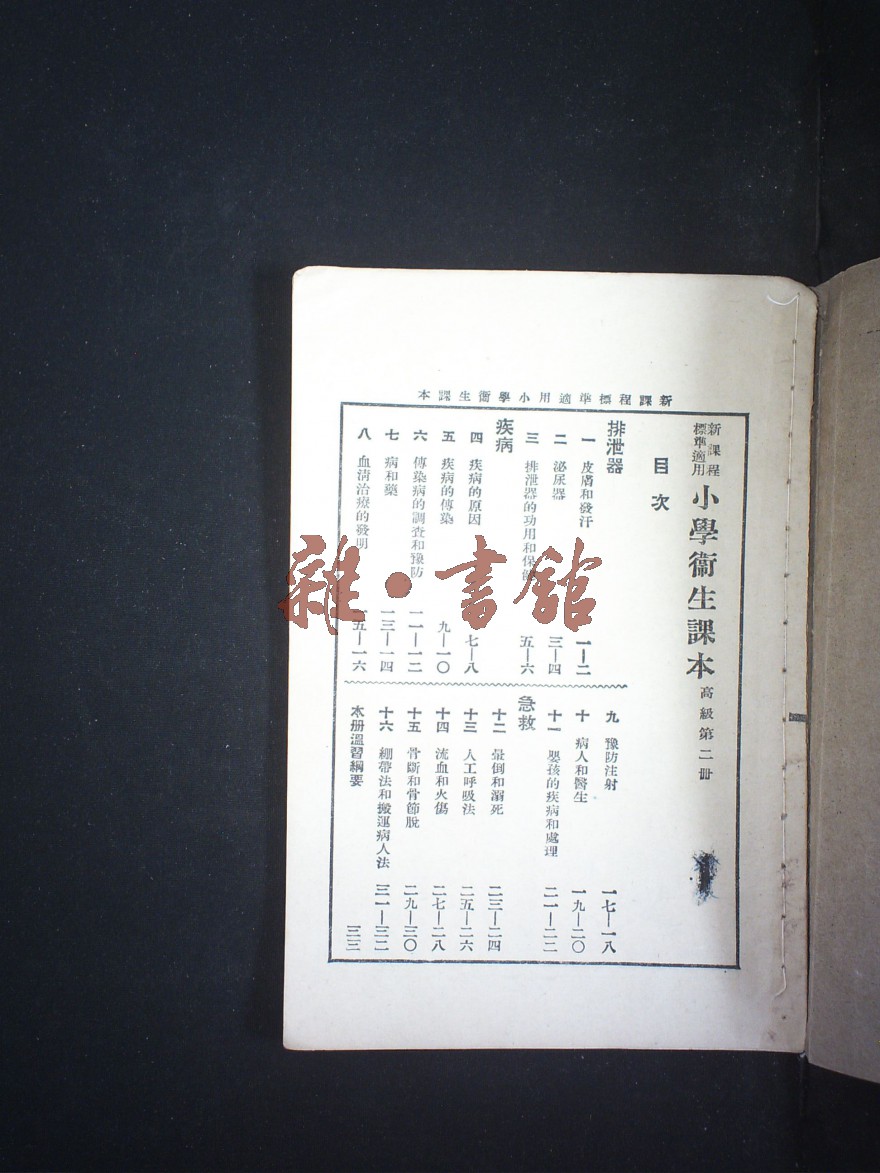 新課程標準適用小學衞生課本
新課程
標準適用
小學衞生課本
高級第二冊
目次
排泄器
一 皮膚和發汗 一—二
二 泌尿器 三—四
三 排泄器的功用和保 五—六
疾病
四 疾病的原因 七—八
五 疾病的傳染 九—一〇
六 傳染病的調查和豫防 一一—一二
七 病和藥 一三—一四
八 血清治療的發明 一五—一六
九 豫防注射 一七—一八
十 病人和醫生 一九—二〇
十一 嬰孩的疾病和處理 二一—二二
急救
十二 暈倒和溺死 二三—二四
十三 人工呼吸法 二五—二六
十四 流血和火傷 二七—二八
十五 骨斷和骨節脫 二九—三〇
十六 綳帶法和搬運病人法 三一—三二
本册溫習綱要 三三
雜·書館